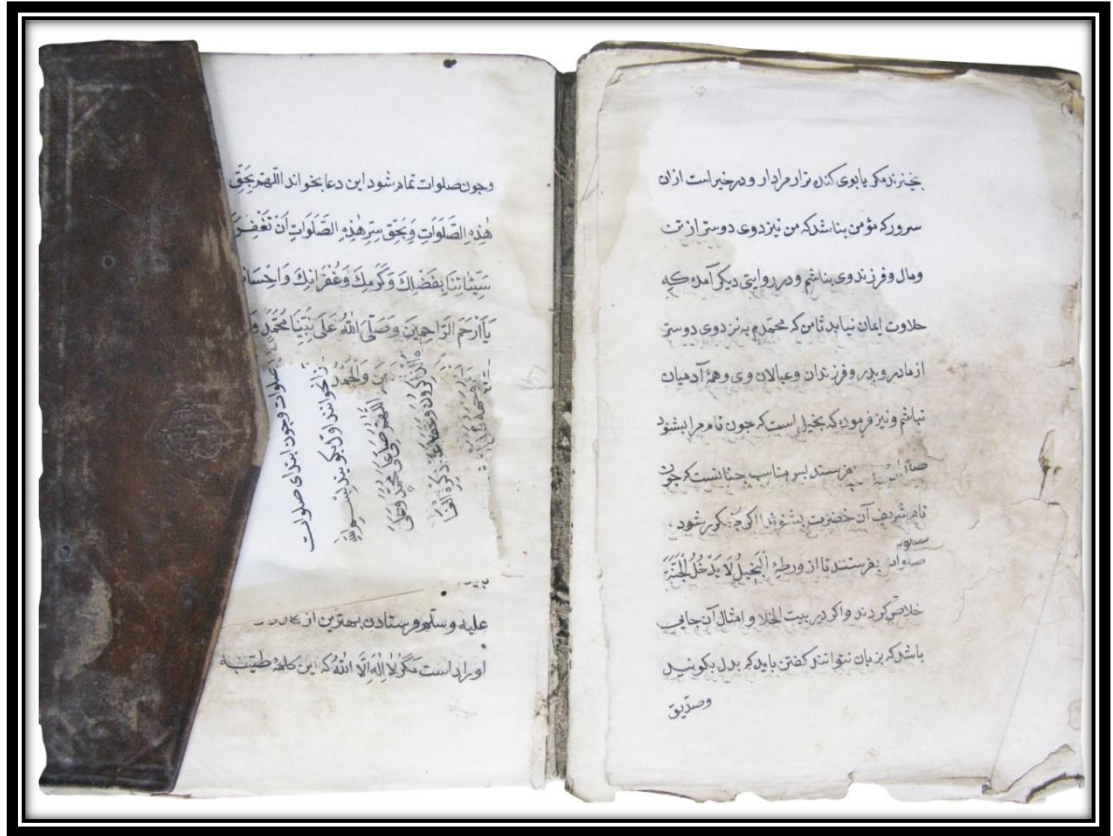 بخنزند مکر یا بوی کنان ترا رمرا دار و در خبر است ازان
سرور که مؤمن بناشد که من نیز دوی دوستر از تن
ومال و فرزند وی بناشم و در روایتی دیکر آمده که
حلاوت ایمان نیابد تا من که محمدم به نزد وی دوستر
از مادر و پدر و فرزندان وعیالان وی وهمهٔ آدمیان
نباشم ونیز فرموده که بخیل است که جون نام مرا بشنود
نفرستد بس مناسب جنانست که جون
نام شریف آن حضرت بشنوند اکرچه مکرر شود
صلوات بفرستند تا از ورطهٔ اَلْبَخِيلُ لَا يَدْخُلُ الْجَنَّةَ
خلاص کردند واکر در بیت الخلا و امثال آن جایی
باشد که بزبان نتوانند کفتن باید که بدل بکویند
وصدیق
وجون صلوات تمام شود این دعا بخواند اللّهمّ بِحَقِّ
هٰذِهِ الصَّلَوَاتِ وَبِحَقِّ سِرِّ هٰذِهِ الصَّلَوَاتِ اَنْ تَغْفِرَ
سَيِّئَاتِنَا بِفَضْلِكَ وَكَرَمِكَ وَغُفْرَانِكَ وَاِحْسَانِ
يَا اَرْحَمَ الرَّاحِمِينَ وَصَلَّى اللهُ عَلَى نَبِيِّنَا مُحَمَّدٍ وَ
صلوات وجون ابتدای صلوات
را خوانند اول بکویند بسم الله
اللّهمّ صَلِّ عَلَى مُحَمَّدٍ وَعَلَى
الذَّاكِرُونَ وَغَفَلَ عَنْ ذِكْرِهِ الْغَا
علیه وسلم فرستادن بهترین از
اوراد است مکر لَا اِلٰهَ اِلَّا اللهُ که این کلمهٔ طیّبه